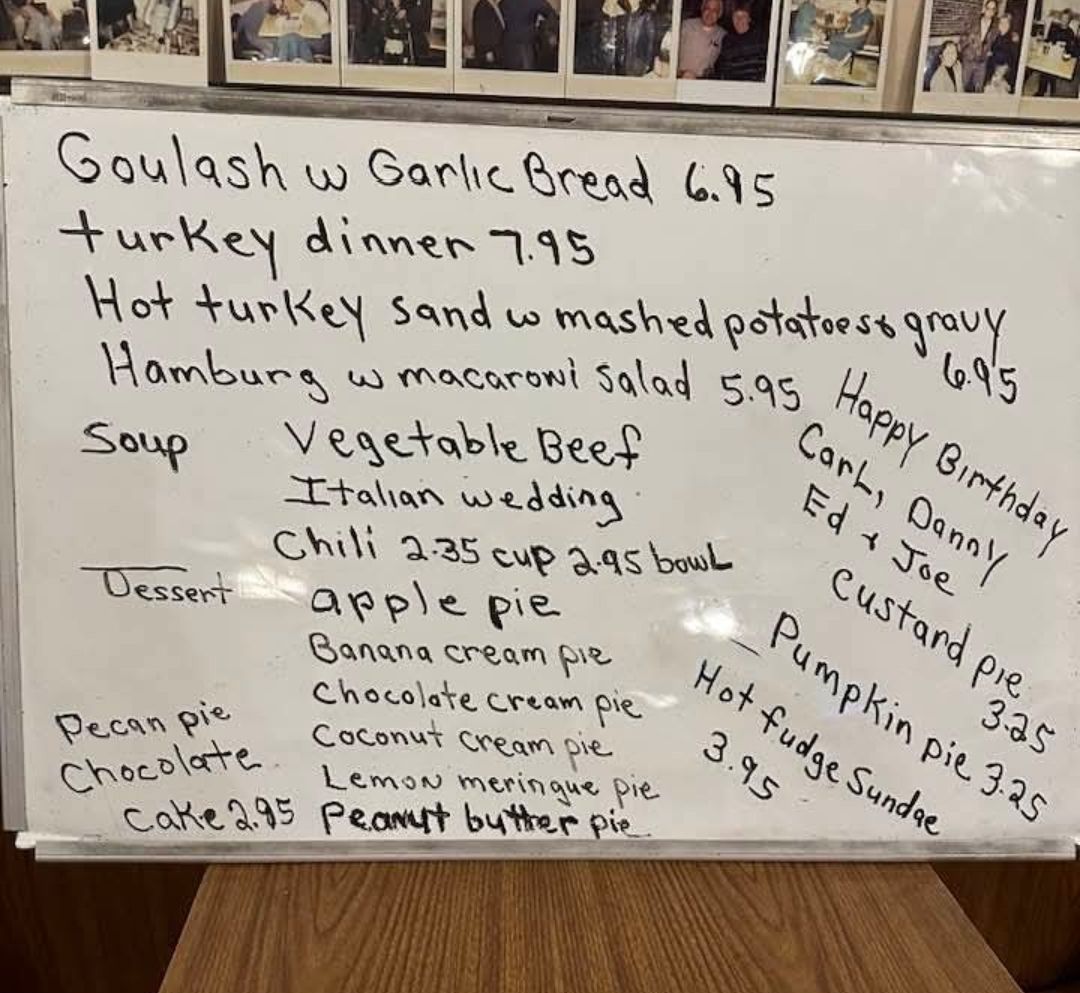 Goulash w Garlic Bread 6.95
turkey dinner 7.95
Hot turkey sand w mashed potatoes & gravy
6.95
Hamburg w macaroni salad 5.95
Soup Vegetable Beef
Italian wedding
Chili 2.35 cup 2.95 bowl
Dessert apple pie
Banana cream pie
Chocolate cream pie
Coconut cream pie
Lemon meringue pie
Peanut butter pie
Pecan pie
Chocolate
Cake 2.95
Happy Birthday
Carl, Danny
Ed & Joe
Custard pie
3.25
Pumpkin pie 3.25
Hot fudge Sundae
3.95